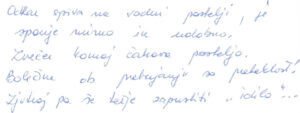 Odkar spiva na vodni postelji, je
spanje mirno in udobno.
Zvečer komaj čakava posteljo.
Bolečine ob prebujanju so preteklost!
Zjutraj pa še težje zapustiti "idilo"...